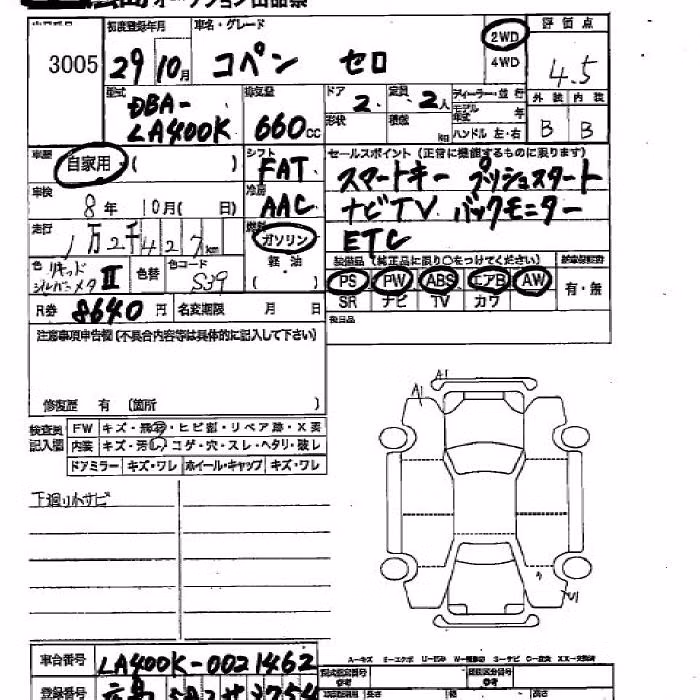 オークション出品票
3005
初度登録年月 29 10月
車名・グレード コペン セロ
2WD
4WD
評価点 4.5
型式 DBA-LA400K
排気量 660cc
ドア 2.
定員 2人
形状
積載 kg
ディーラー・並行
モデル年式 年
ハンドル 左・右
外装 B
内装 B
車歴 自家用・( )
シフト FAT
冷房 AAC
セールスポイント (正常に機能するものに限ります)
スマートキー プッシュスタート
ナビTV バックモニター
ETC
車検 8年 10月( 日)
走行 1万2千427km
燃料 ガソリン
軽油
( )
色 リキッドシルバーメタ II
色替
色コード S39
装備品 (純正品に限り○をつけてください)
PS PW ABS エアB AW
SR ナビ TV カワ
有・無
R券 8640円
名変期限 月 日
後日品
注意事項申告欄 (不具合内容等は具体的に記入して下さい)
修復歴 有 〔箇所 〕
検査員記入欄
FW キズ・飛石・ヒビ割・リペア跡・X要
内装 キズ・汚レ・コゲ・穴・スレ・ヘタリ・破レ
ドアミラー キズ・ワレ ホイール・キャップ キズ・ワレ
下廻り小サビ
A1
A1
車台番号 LA400K-0021462
登録番号 広島
A-キズ E-エクボ